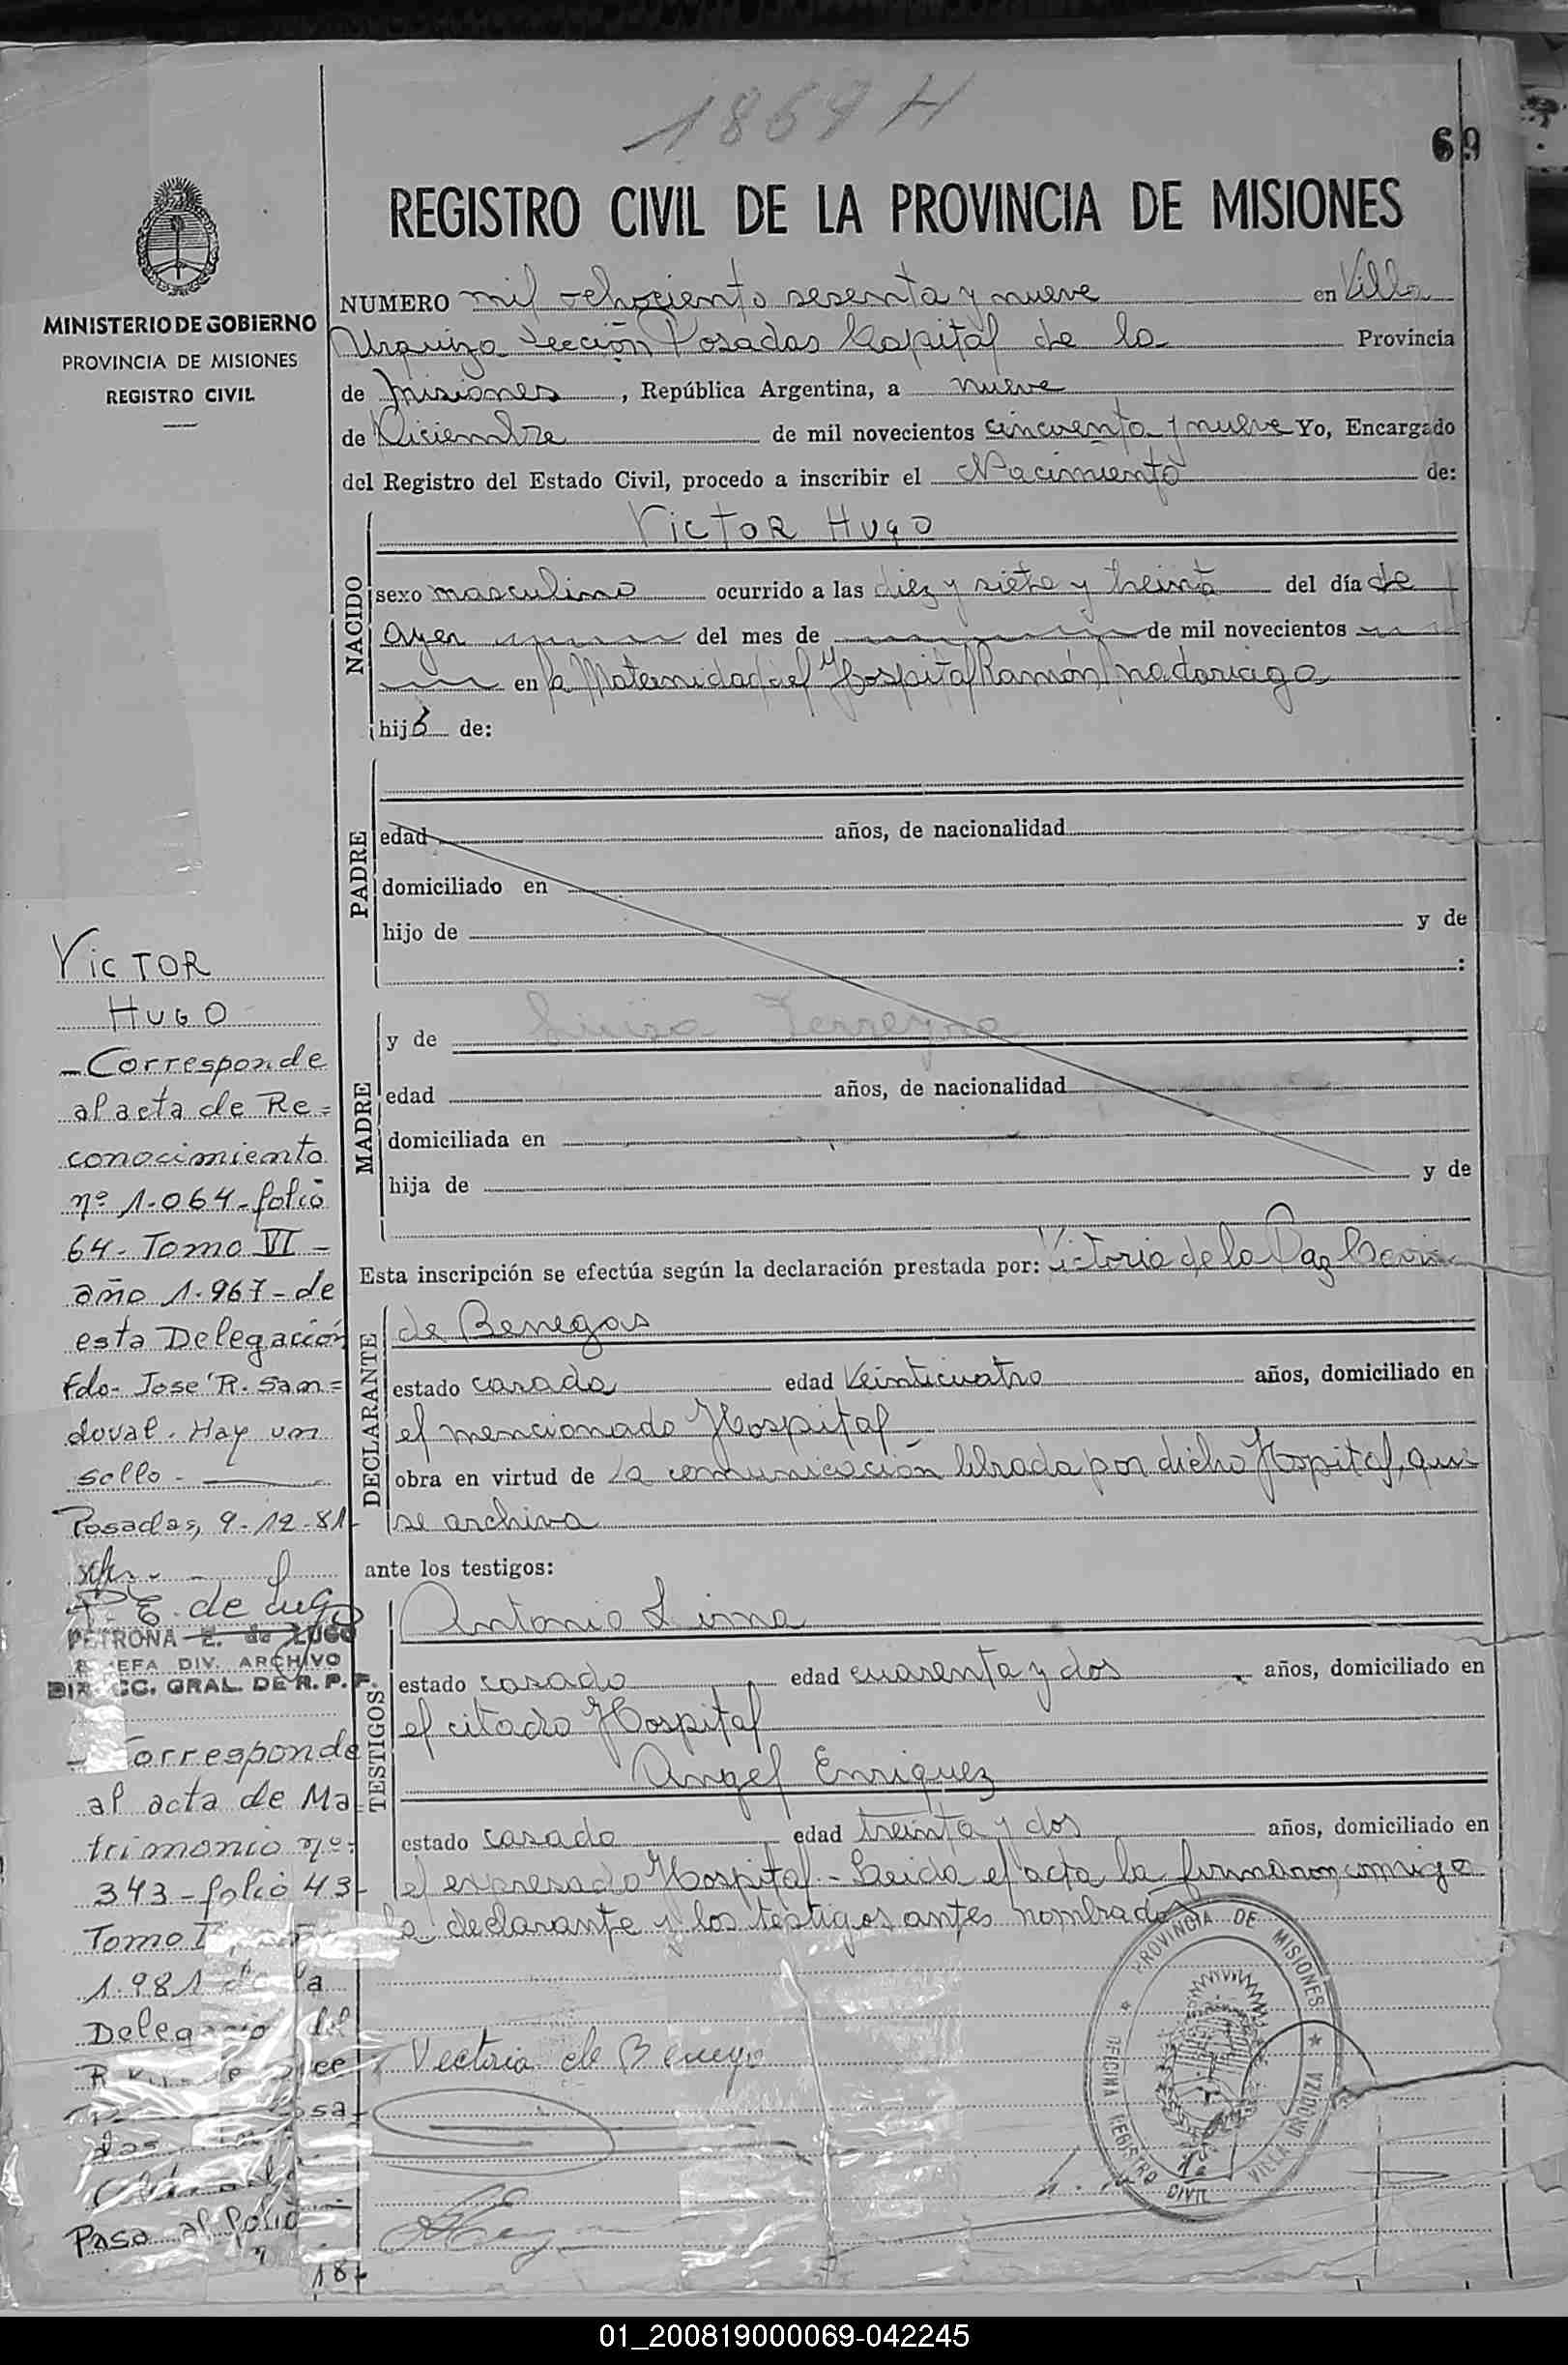 1869 H
69
REGISTRO CIVIL DE LA PROVINCIA DE MISIONES
MINISTERIO DE GOBIERNO
PROVINCIA DE MISIONES
REGISTRO CIVIL
NUMERO mil ochociento sesenta y nueve en Villa
Urquiza Sección Posadas Capital de la Provincia
de Misiones, República Argentina, a nueve
de Diciembre de mil novecientos cincuenta y nueve Yo, Encargado
del Registro del Estado Civil, procedo a inscribir el Nacimiento de:
NACIDO
VICTOR HUGO
sexo masculino ocurrido a las diez y siete y treinta del día de
ayer del mes de de mil novecientos
en la Maternidad del Hospital Ramón Madariaga
hijo de:
PADRE
edad años, de nacionalidad
domiciliado en
hijo de y de
:
MADRE
y de
edad años, de nacionalidad
domiciliada en
hija de y de
Esta inscripción se efectúa según la declaración prestada por: Victoria de la Paz
DECLARANTE
de Benegas
estado casada edad Veinticuatro años, domiciliado en
el mencionado Hospital
obra en virtud de la comunicación librada por dicho Hospital, que
se archiva
ante los testigos:
TESTIGOS
Antonio Lima
estado casado edad cuarenta y dos años, domiciliado en
el citado Hospital
Angel Enriquez
estado casado edad treinta y dos años, domiciliado en
el expresado Hospital - Leida el acta la firmaron conmigo
la declarante y los testigos antes nombrados
Victoria de
PROVINCIA DE MISIONES
OFICINA REGISTRO CIVIL
VILLA URQUIZA
VICTOR
HUGO
- Corresponde
al acta de Re=
conocimiento
nº 1.064 - folio
64 - Tomo VI -
año 1.967 - de
esta Delegación
Fdo. Jose R. San=
doval. Hay un
sello -
Posadas, 9-12-81-
P. E. de Lugo
PETRONA E. de LUGO
JEFA DIV. ARCHIVO
DIRECC. GRAL. DE R. P. F.
- Corresponde
al acta de Ma
trimonio nº:
343 - folio 43-
Tomo
1.981 de la
Delegación del
Pasa al folio
18-
01_200819000069-042245